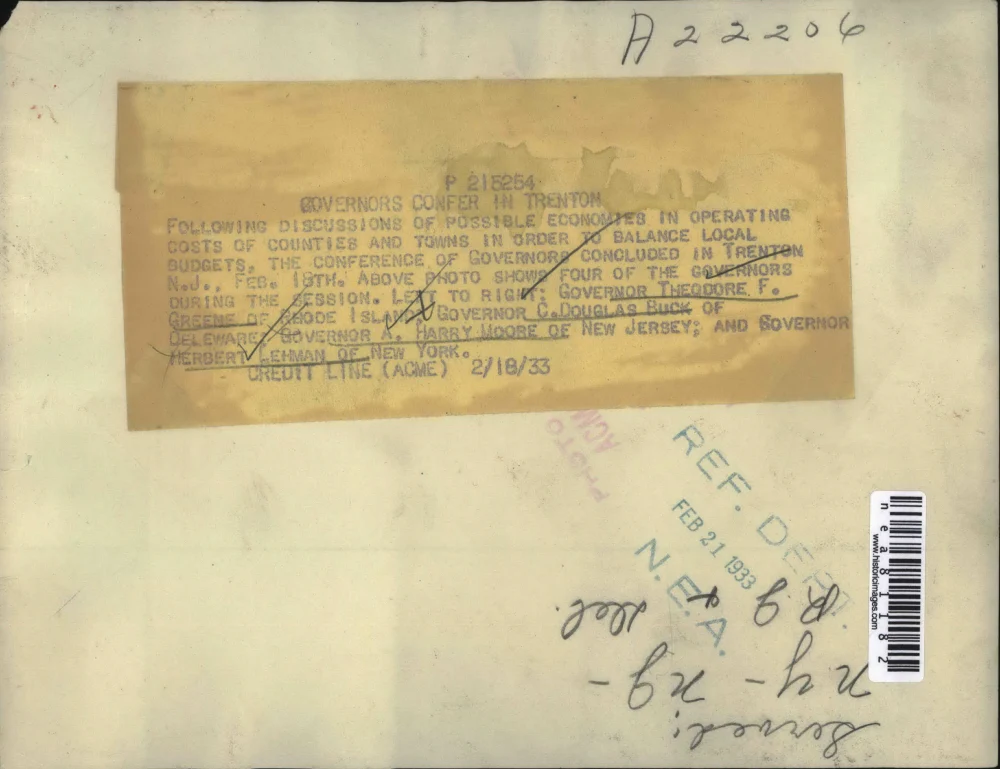 A22206
P 215254
GOVERNORS CONFER IN TRENTON
FOLLOWING DISCUSSIONS OF POSSIBLE ECONOMIES IN OPERATING
COSTS OF COUNTIES AND TOWNS IN ORDER TO BALANCE LOCAL
BUDGETS, THE CONFERENCE OF GOVERNORS CONCLUDED IN TRENTON
N.J., FEB. 18TH. ABOVE PHOTO SHOWS FOUR OF THE GOVERNORS
DURING THE SESSION. LEFT TO RIGHT: GOVERNOR THEODORE F.
GREENE OF RHODE ISLAND; GOVERNOR C.DOUGLAS BUCK OF
DELEWARE; GOVERNOR A. HARRY MOORE OF NEW JERSEY; AND GOVERNOR
HERBERT LEHMAN OF NEW YORK.
CREDIT LINE (ACME) 2/18/33
PHOTO
ACM
REF. DEPT.
FEB 21 1933
N.E.A.
nea81182
www.historicimages.com
Served:
NY - NJ -
Del.